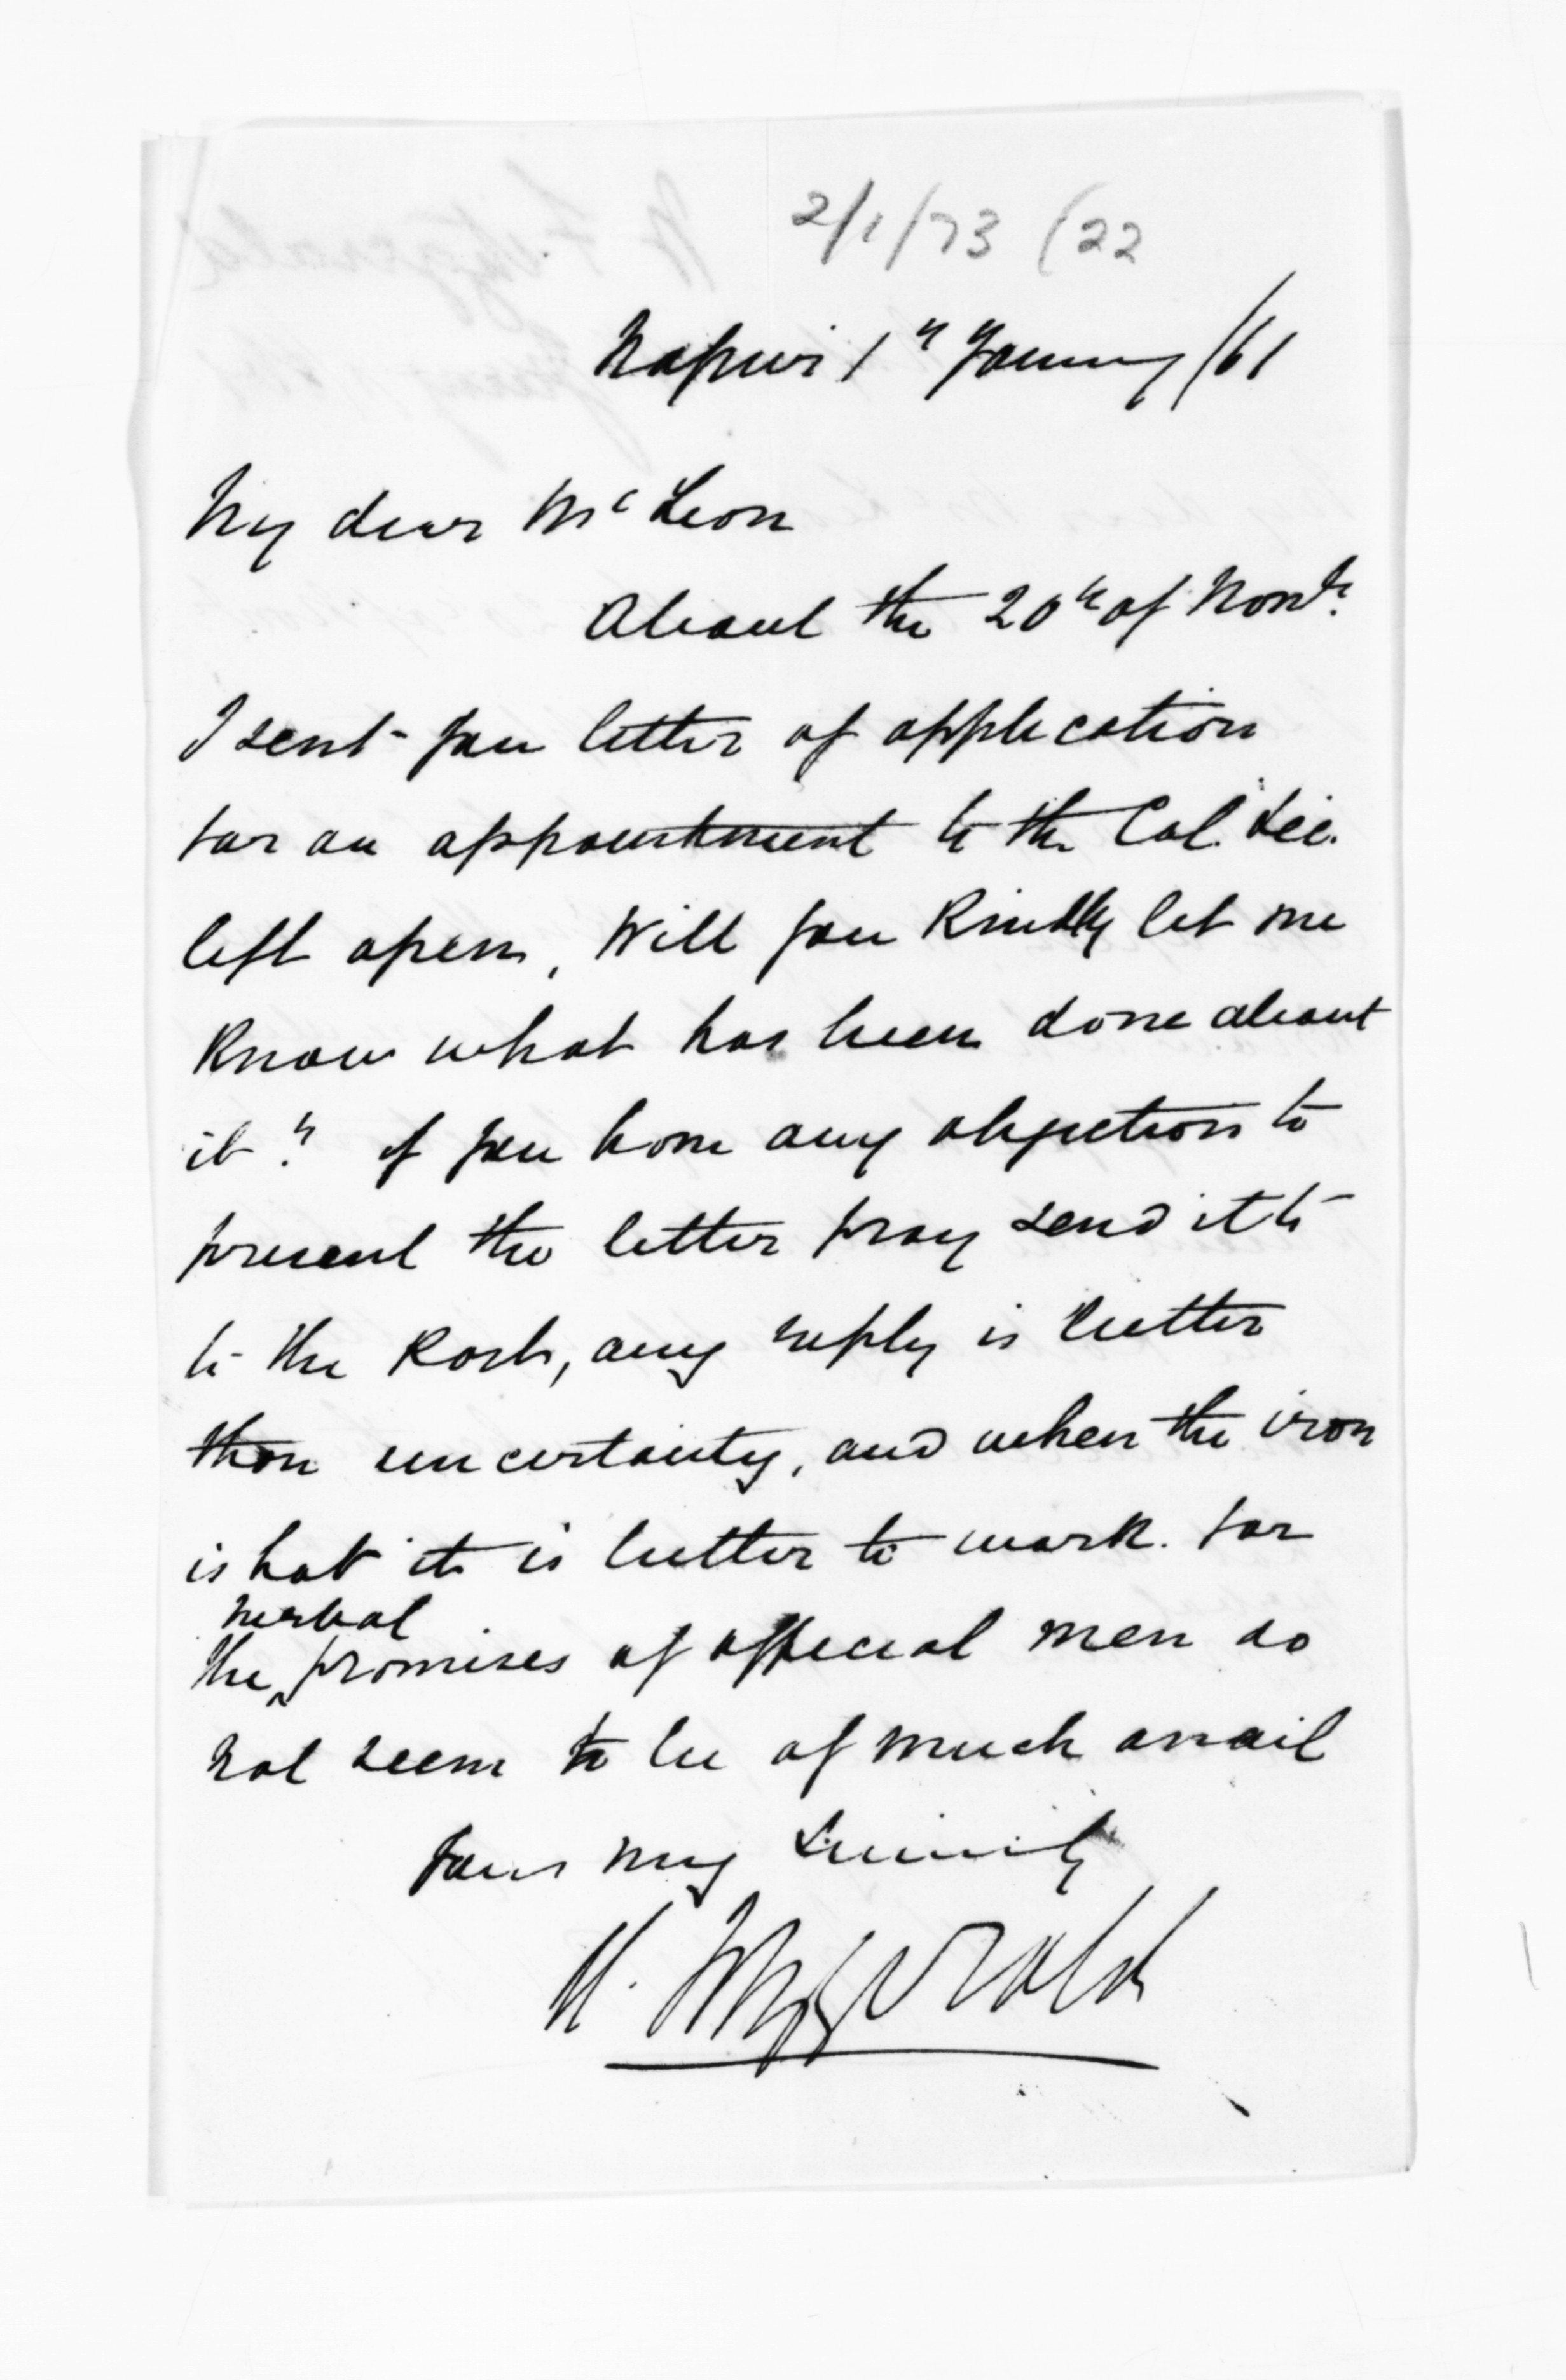 2/1/73 (22
Napier 1st January /61
My dear McLean
About the 20th of Novbr.
I sent you letter of application
for an appointment to the Col. Sec.
left open, Will you Kindly let me
Know what has been done about
it? if you have any objection to
present the letter pray send it to
to the Post, any reply is better
than uncertainty, and when the iron
is hot it is better to work. for
verbal
the ^ promises of official men do
not seem to be of much avail
Yours very Sincerely
Fitzgerald